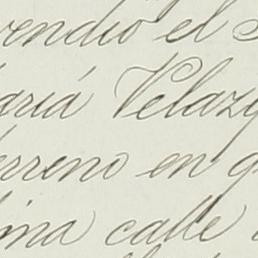 vendió el S
aria Velazq
erreno en q
ina calle